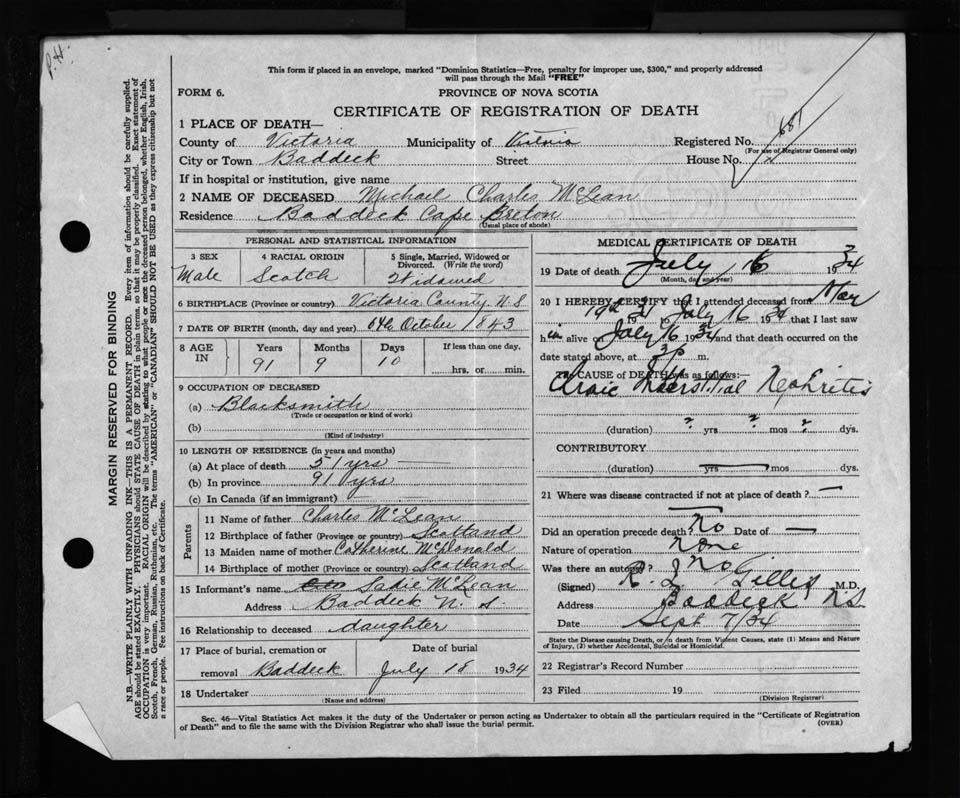 P.H.
This form if placed in an envelope, marked "Dominion Statistics—Free, penalty for improper use, $300," and properly addressed
will pass through the Mail "FREE"
FORM 6.
PROVINCE OF NOVA SCOTIA
CERTIFICATE OF REGISTRATION OF DEATH
1 PLACE OF DEATH—
County of Victoria Municipality of Victoria Registered No. 681
(For use of Registrar General only)
City or Town Baddeck Street House No.
If in hospital or institution, give name
2 NAME OF DECEASED Michael Charles McLean
Residence Baddeck Cape Breton
(Usual place of abode)
PERSONAL AND STATISTICAL INFORMATION
3 SEX 4 RACIAL ORIGIN 5 Single, Married, Widowed or
Divorced. (Write the word)
Male Scotch Widowed
6 BIRTHPLACE (Province or country) Victoria County N.S
7 DATE OF BIRTH (month, day and year) 6th October 1843
8 AGE IN Years Months Days If less than one day,
91 9 10 hrs. or min.
9 OCCUPATION OF DECEASED
(a) Blacksmith
(Trade or occupation or kind of work)
(b)
(Kind of industry)
10 LENGTH OF RESIDENCE (in years and months)
(a) At place of death 51 yrs —
(b) In province 91 yrs
(c) In Canada (if an immigrant) —
Parents
11 Name of father Charles McLean
12 Birthplace of father (Province or country) Scotland
13 Maiden name of mother Catherine McDonald
14 Birthplace of mother (Province or country) Scotland
15 Informant's name Sadie McLean
Address Baddeck N. S.
16 Relationship to deceased daughter
17 Place of burial, cremation or Date of burial
removal Baddeck July 18 1934
18 Undertaker
(Name and address)
MEDICAL CERTIFICATE OF DEATH
19 Date of death July 16 1934
(Month, day and year)
20 I HEREBY CERTIFY that I attended deceased from May
19th 1931 to July 16 1934 that I last saw
him alive on July 16 1934 and that death occurred on the
date stated above, at m.
The CAUSE OF DEATH was as follows:—
Interstitial Nephritis
(duration) ? yrs ? mos ? dys.
CONTRIBUTORY
(duration) yrs mos dys.
21 Where was disease contracted if not at place of death? —
Did an operation precede death? No Date of —
Nature of operation None
Was there an autopsy? No
(Signed) R. L. Gillis M.D.
Address Baddeck N.S.
Date Sept 7/34
State the Disease causing Death, or in death from Violent Causes, state (1) Means and Nature
of Injury, (2) whether Accidental, Suicidal or Homicidal.
22 Registrar's Record Number
23 Filed 19
(Division Registrar)
Sec. 46—Vital Statistics Act makes it the duty of the Undertaker or person acting as Undertaker to obtain all the particulars required in the "Certificate of Registration
of Death" and to file the same with the Division Registrar who shall issue the burial permit.
(OVER)
MARGIN RESERVED FOR BINDING
N.B.—WRITE PLAINLY WITH UNFADING INK—THIS IS A PERMANENT RECORD. Every item of information should be carefully supplied.
AGE should be stated EXACTLY. PHYSICIANS should STATE CAUSE OF DEATH in plain terms, so that it may be properly classified. Exact statement of
OCCUPATION is very important. RACIAL ORIGIN will be described by stating to what people or race the deceased person belonged, whether English, Irish,
Scotch, French, German, Russian, Ruthenian, etc. The terms "AMERICAN" or "CANADIAN" SHOULD NOT BE USED as they express citizenship but not
a race or people. See instructions on back of Certificate.